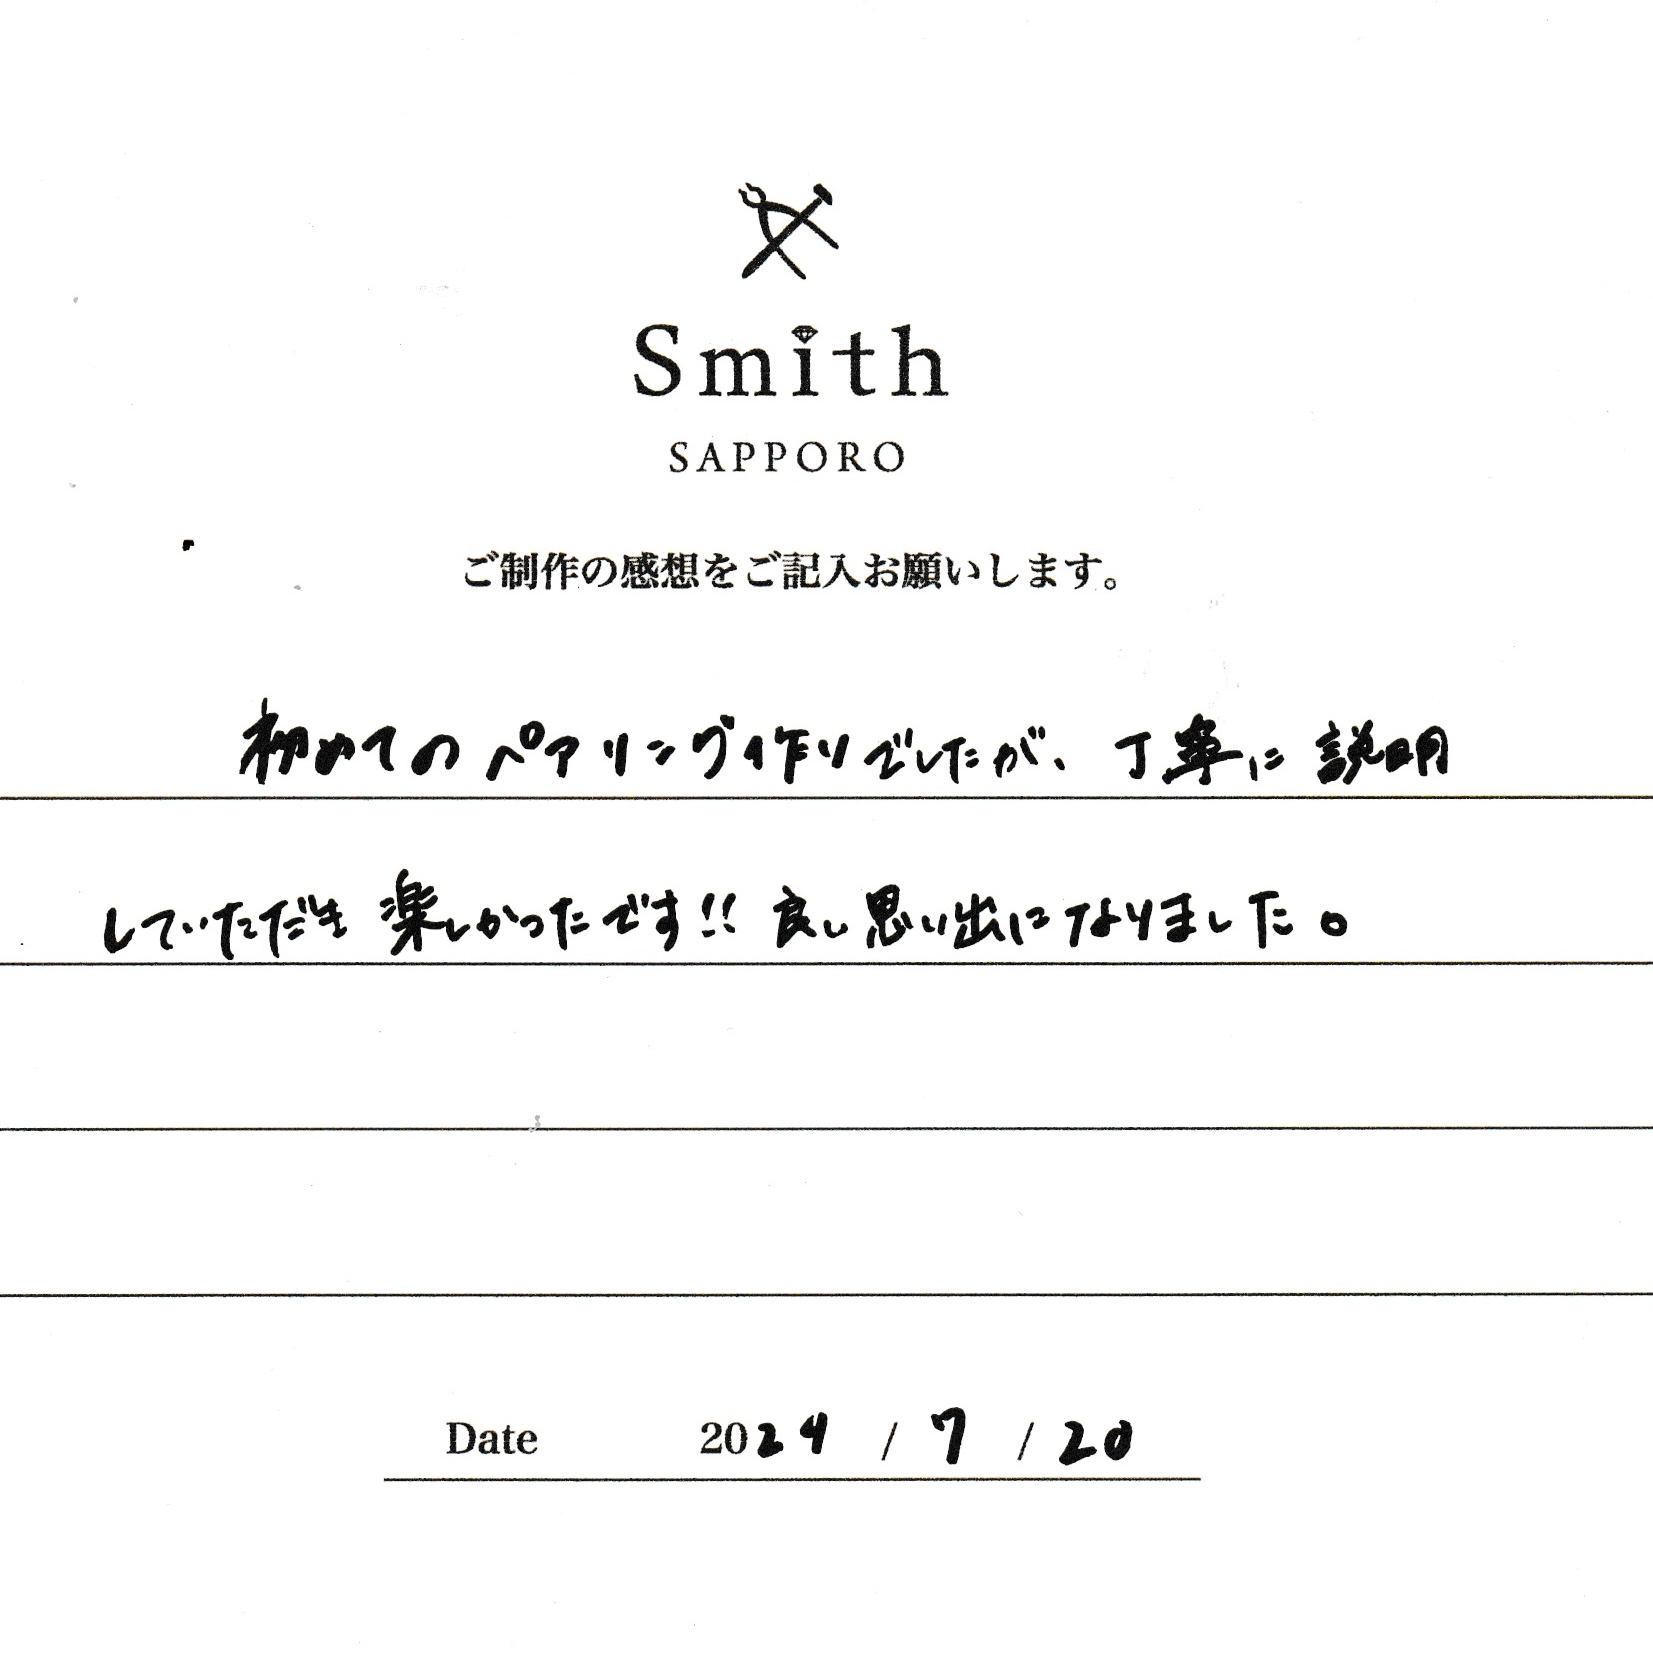 Smith
SAPPORO
ご制作の感想をご記入お願いします。
初めてのペアリング作りでしたが、丁寧に説明
していただき楽しかったです!!良い思い出になりました。
Date 2024 / 7 / 20